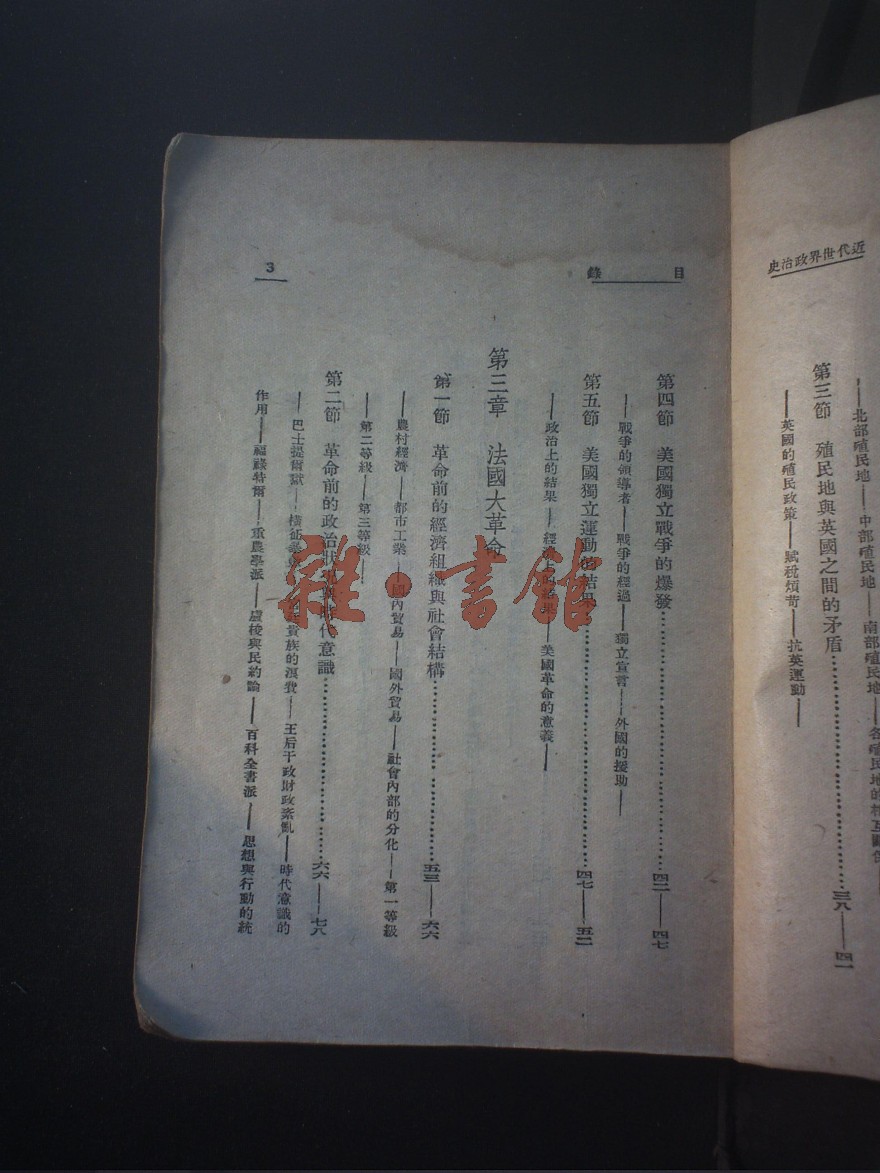 近代世界政治史
——北部殖民地——中部殖民地——南部殖民地——各殖民地的相互關係
第三節 殖民地與英國之間的矛盾……三八——四一
——英國的殖民政策——賦稅煩苛——抗英運動——
目錄
3
第四節 美國獨立戰爭的爆發……四二——四七
——戰爭的領導者——戰爭的經過——獨立宣言——外國的援助——
第五節 美國獨立運動的結果……四七——五二
——政治上的結果——經濟上的結果——美國革命的意義——
第三章 法國大革命
第一節 革命前的經濟組織與社會結構……五三——六六
——農村經濟——都市工業——國內貿易——國外貿易——社會內部的分化——第一等級
——第二等級——第三等級——
第二節 革命前的政治狀況與時代意識……六六——七八
——巴士提爾獄——橫征 貴族的 ——王后干政財政紊亂——時代意識的
作用——福祿特爾——重農學派——盧梭與民約論——百科全書派——思想與行動的統
雜·書館